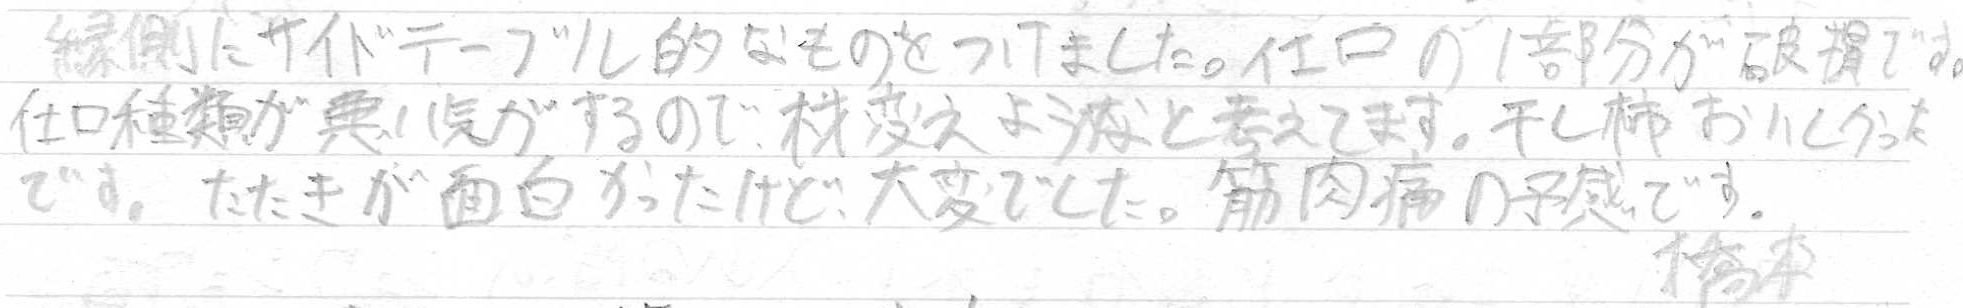 縁側にサイドテーブル的なものをつけました。仕口の1部分が破損です。
仕口種類が悪い気がするので、材変えようかなと考えてます。干し柿おいしかった
です。たたきが面白かったけど、大変でした。筋肉痛の予感です。
橋本